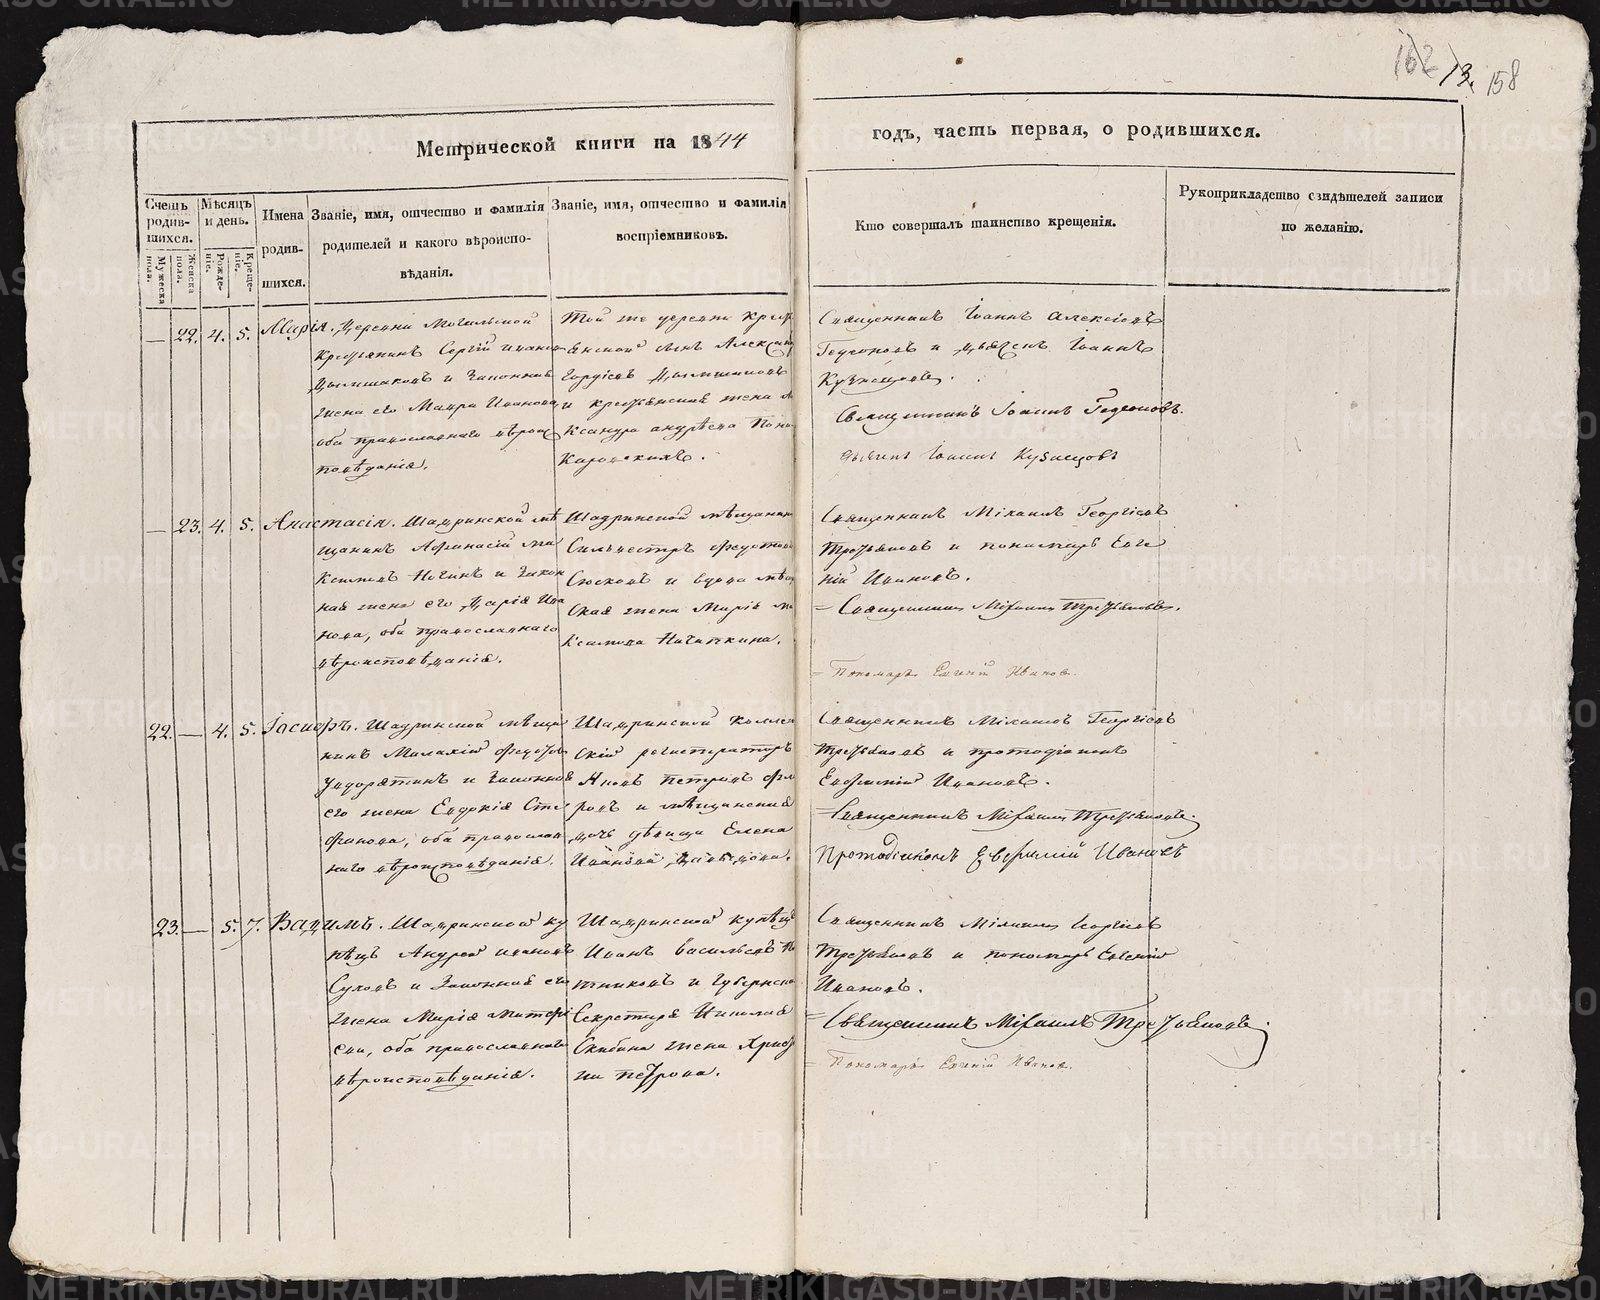 162 13. 158
Метрической книги на 1844 годъ, часть первая, о родившихся.
Счетъ родившихся.
Мужеска пола.
Женска пола.
Мѣсяцъ и день.
Рожденіе.
Крещеніе.
Имена родившихся.
Званіе, имя, отчество и фамилія
родителей и какого вѣроиспо-
вѣданія.
Званіе, имя, отчество и фамилія
воспріемниковъ.
Кто совершалъ таинство крещенія.
Рукоприкладство свидѣтелей записи
по желанію.
— 22. 4. 5. Марія. Деревни
крестьянинъ Сергій Иванов
и законная
жена его Мавра Иванова,
оба православнаго вѣроис
повѣданія.
Той же деревни крест
янской сынъ Александ
Гордіевъ
и крестьянская жена
ксандра Андрѣева
Священникъ Іоаннъ Алексіевъ
Гедеоновъ и дьячекъ Іоаннъ
Кузнецовъ.
Священникъ Іоаннъ Гедеоновъ.
Дьячекъ Іоаннъ Кузнецовъ
— 23. 4. 5. Анастасія. Шадринской мѣ
щанинъ Афанасій Ма
ксимовъ и закон
ная жена его Дарія Ива
нова, оба православнаго
вѣроисповѣданія.
Шадринской мѣщанин
Сильвестръ Федотов
и вдова мѣщ
ская жена Марія Ма
ксимова
Священникъ Михаилъ Георгіевъ
Третьяковъ и пономарь Евге
ній Ивановъ.
= Священникъ Михаилъ Третьяковъ.
= Пономарь Евгеній Иванов.
22. — 4. 5. Іосифъ. Шадринской мѣща
нинъ Малахій Федотов
и законная
его жена Евдокія Сте
фанова, оба православ
наго вѣроисповѣданія.
Шадринской коллеж
скій регистраторъ
Яковъ Петровъ
и мѣщанская
дочь дѣвица Елена
Иванова Давыдова.
Священникъ Михаилъ Георгіевъ
Третьяковъ и протодіаконъ
Евфимій Ивановъ.
= Священникъ Михаилъ Третьяковъ.
Протодіаконъ Евфимій Ивановъ
23. — 5. 7. Вадимъ. Шадринской ку
пѣцъ Андрей Ивановъ
Суховъ и законная его
жена Марія Митрофа
ева, оба православнаго
вѣроисповѣданія.
Шадринской купѣцъ
Иванъ Васильевъ
и Губернска
Секретаря Николая
Скибина жена
на Петрова.
Священникъ Михаилъ Георгіевъ
Третьяковъ и пономарь Евгеній
Ивановъ.
= Священникъ Михаилъ Третьяковъ.
= Пономарь Евгеній Иванов.
METRIKI.GASO-URAL.RU